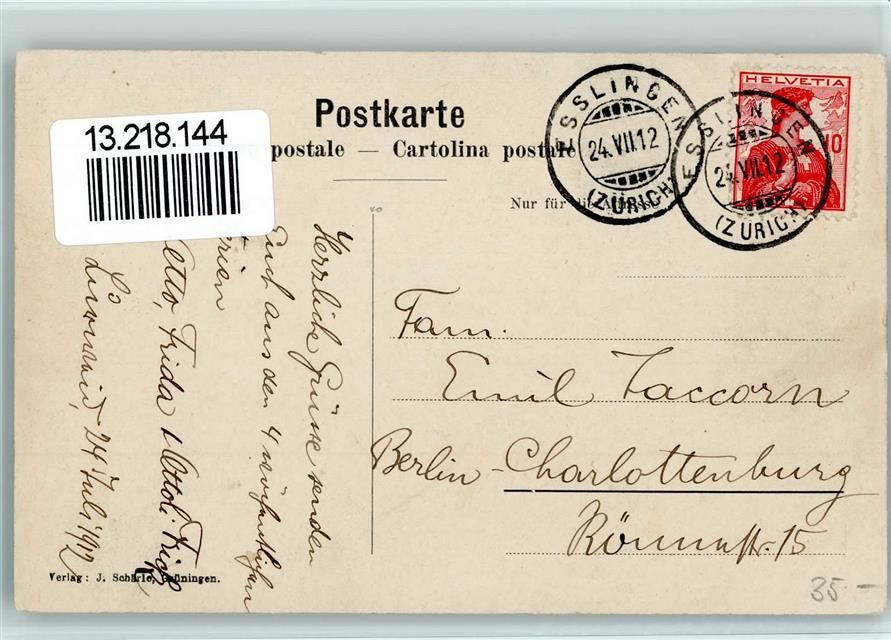 13.218.144
Postkarte
postale — Cartolina postale
Nur für die Adresse
ESSLINGEN
24.VII.12
(ZÜRICH)
ESSLINGEN
24.VII.12
(ZÜRICH)
HELVETIA
10
Herzliche Grüsse senden
Euch aus den 4 wöchentlichen
Ferien
Otto, Frida & Ottoli
24 Juli 1912
Fam.
Emil Taccorn
Berlin-Charlottenburg
15
Verlag: J. Schärle, Grüningen.
35.-